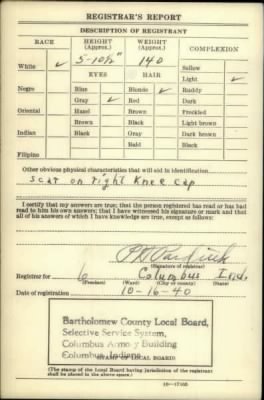 REGISTRAR'S REPORT
DESCRIPTION OF REGISTRANT
RACE HEIGHT (Approx.) WEIGHT (Approx.) COMPLEXION
White ✓ 5-10½" 140 Sallow
EYES HAIR Light ✓
Negro Blue Blonde ✓ Ruddy
Gray ✓ Red Dark
Oriental Hazel Brown Freckled
Brown Black Light brown
Indian Black Gray Dark brown
Bald Black
Filipino
Other obvious physical characteristics that will aid in identification
Scar on right Knee Cap
I certify that my answers are true; that the person registered has read or has had
read to him his own answers; that I have witnessed his signature or mark and that
all of his answers of which I have knowledge are true, except as follows:
(Signature of registrar)
Registrar for 6 Columbus Ind.
(Precinct) (Ward) (City or county) (State)
Date of registration 10-16-40
Bartholomew County Local Board,
Selective Service System,
Columbus Armory Building
Columbus, Indiana
STAMP OF LOCAL BOARD
(The stamp of the Local Board having jurisdiction of the registrant
shall be placed in the above space.)